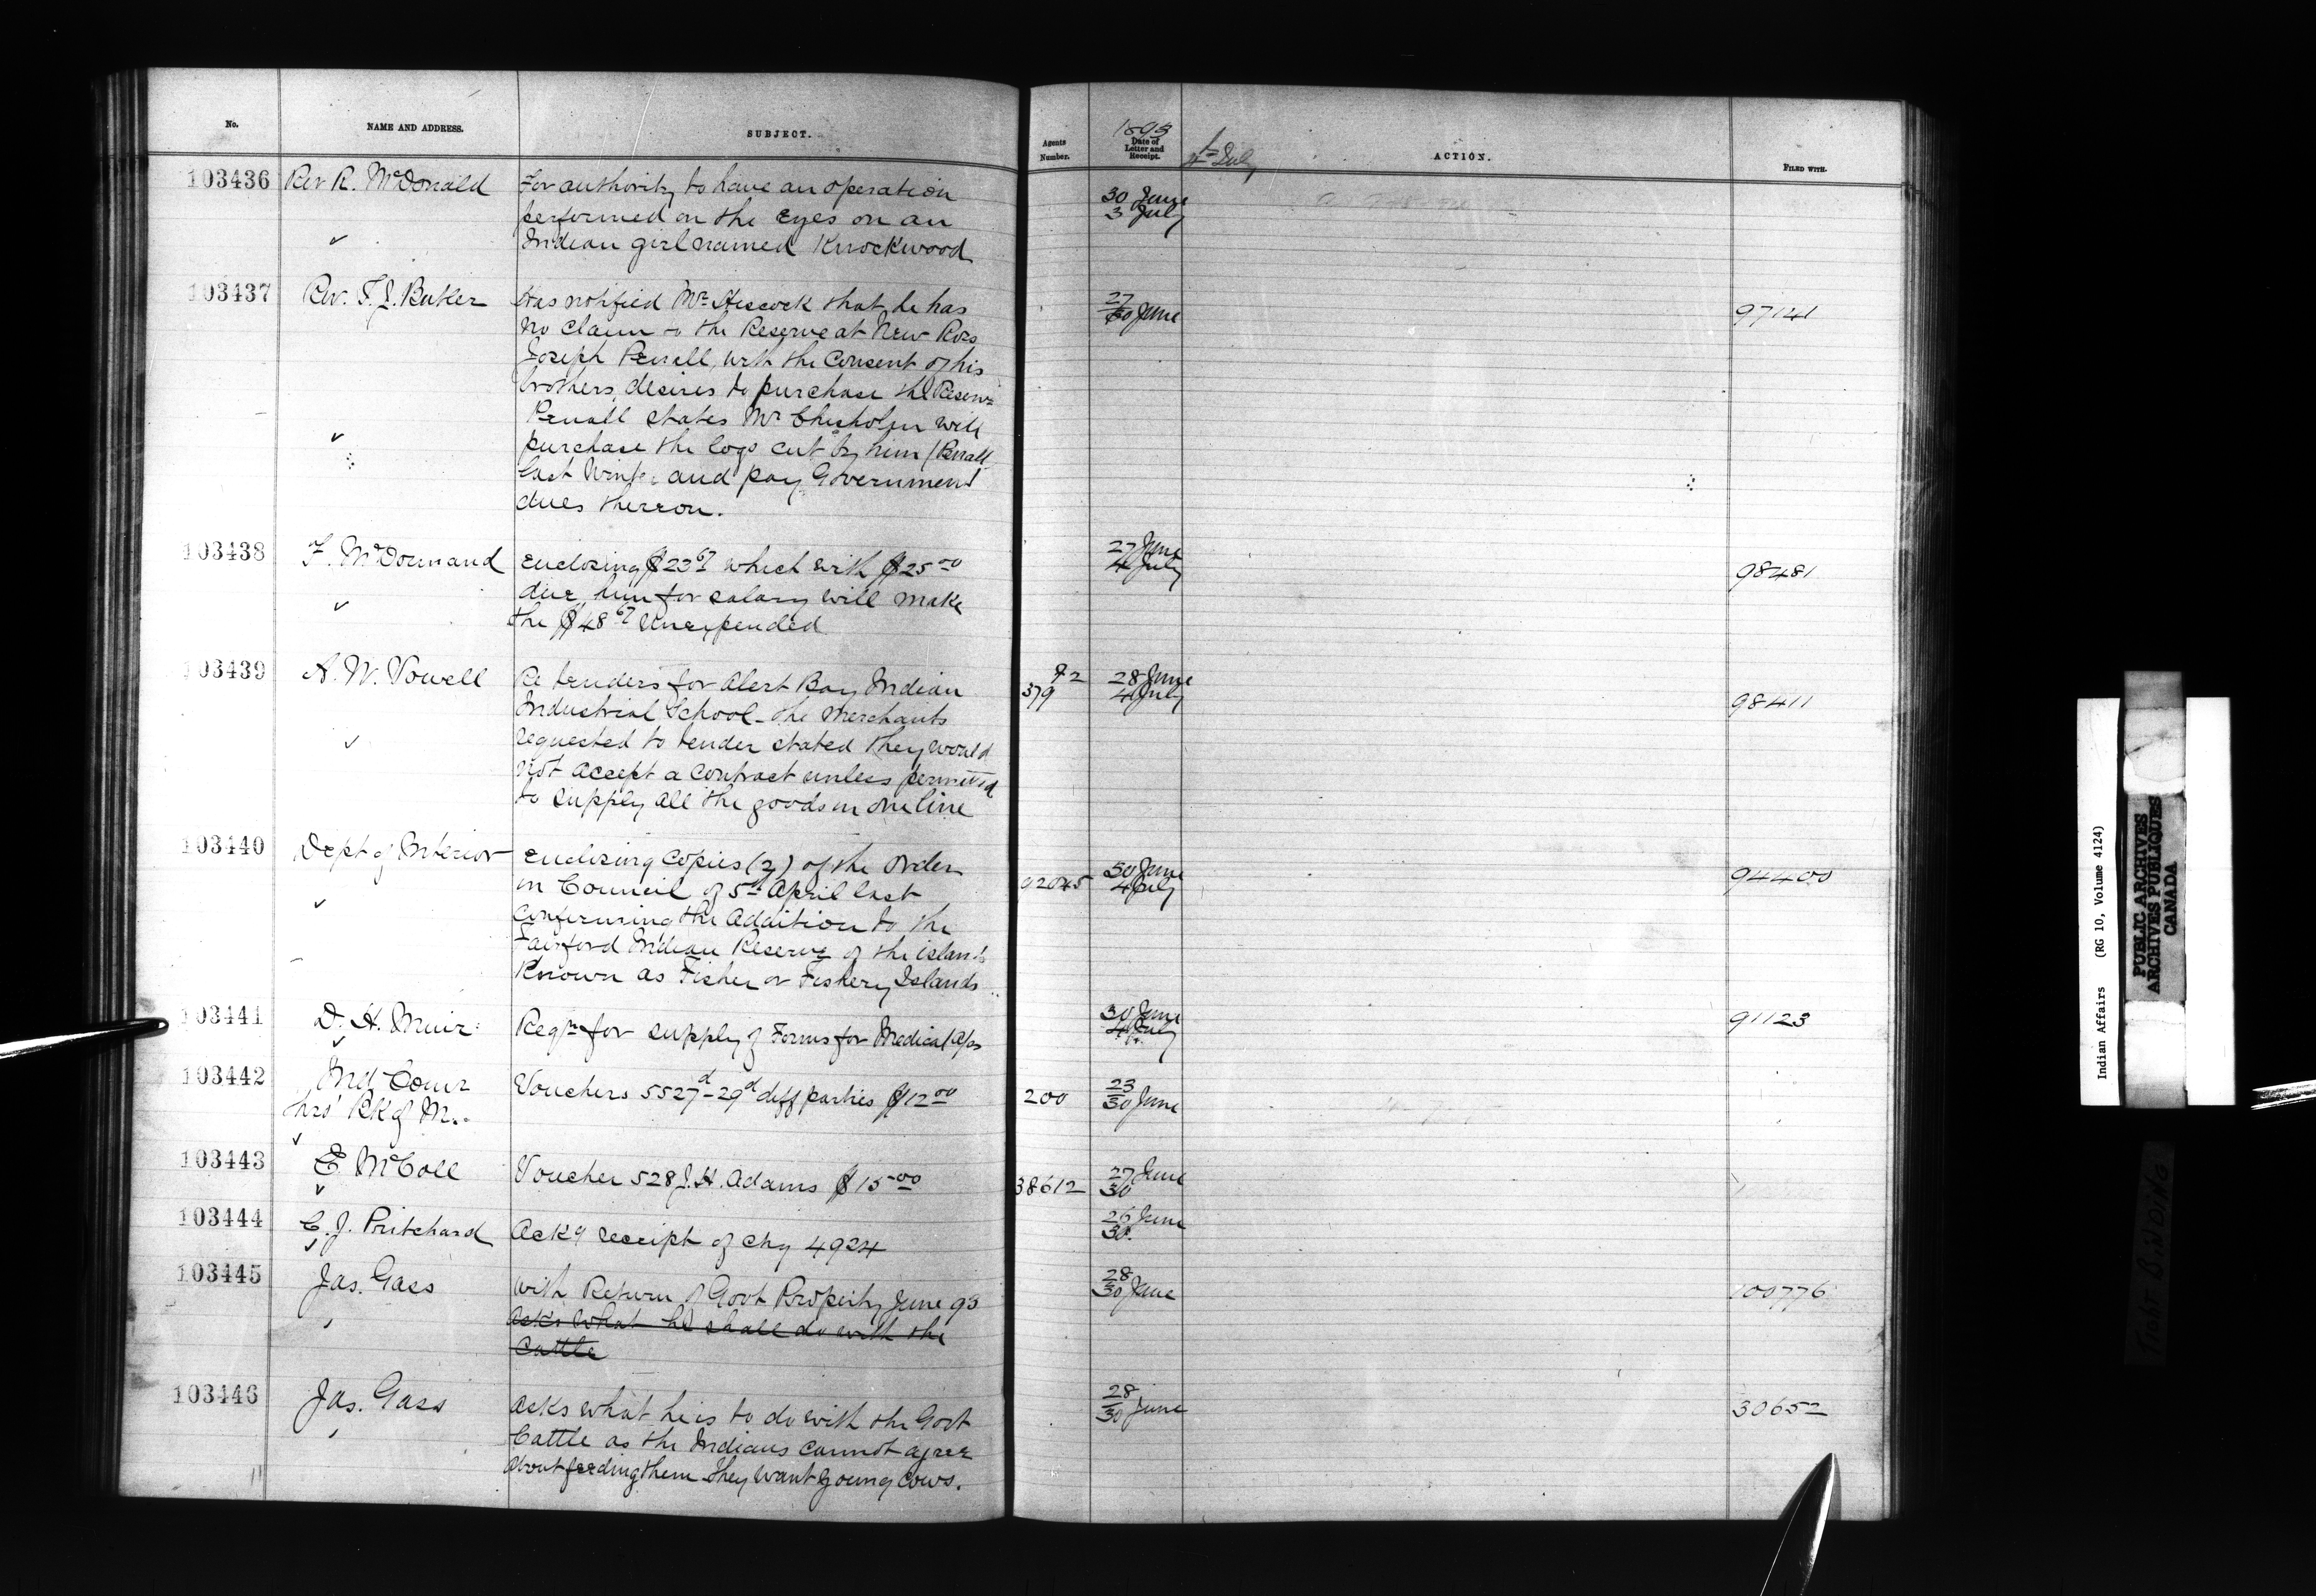 No.
NAME AND ADDRESS.
SUBJECT.
Agents Number.
1893
Date of Letter and Receipt.
4th July
ACTION.
FILED WITH.
103436
Rev R. McDonald
For authority to have an operation
performed on the Eyes on an
Indian girl named Knockwood
30 June
3 July
103437
Rev. T. J. Butler
Has notified Mr Hiscock that he has
no claim to the Reserve at New Ross
Joseph Penall, with the Consent of his
brothers, desires to purchase the Reserve
Penall states Mr Chisholm will
purchase the logs cut by him (Penall
last Winter and pay Government
dues thereon.
27
30 June
97141
103438
F. McDormand
Enclosing $23 67 which with $25 00
due him for salary will make
the $48 67 Unexpended
27 June
4 July
98481
103439
A. W. Vowell
Re tenders for Alert Bay Indian
Industrial School - the Merchants
requested to tender stated they would
not accept a contract unless permitted
to supply all the goods in one line
92
379
28 June
4 July
98411
103440
Dept of Interior
Enclosing Copies (2) of the Order
in Council of 5th April last
confirming the addition to the
Fairford Indian Reserve of the islands
Known as Fisher or Fishery Islands
92045
30 June
4 July
94400
103441
D. H. Muir
Reqn for supply of Forms for Medical a/cs
30 June
4 July
91123
103442
Ind Comr
hrs' Bk of M.
Vouchers 5527d - 29d diff parties $12 00
200
23
30 June
103443
E. McColl
Voucher 528 J. H. Adams $15 00
38612
27 June
30
103444
C. J. Pritchard
Ackg receipt of chq 4924
26 June
30
103445
Jas. Gass
With Return of Govt Property June 93
asks what he shall do with the
Cattle
28
30 June
100776
103446
Jas. Gass
Asks what he is to do with the Govt
Cattle as the Indians cannot agree
about feeding them They want young cows.
28
30 June
30652
Indian Affairs (RG 10, Volume 4124)
PUBLIC ARCHIVES
ARCHIVES PUBLIQUES
CANADA
TIGHT BINDING